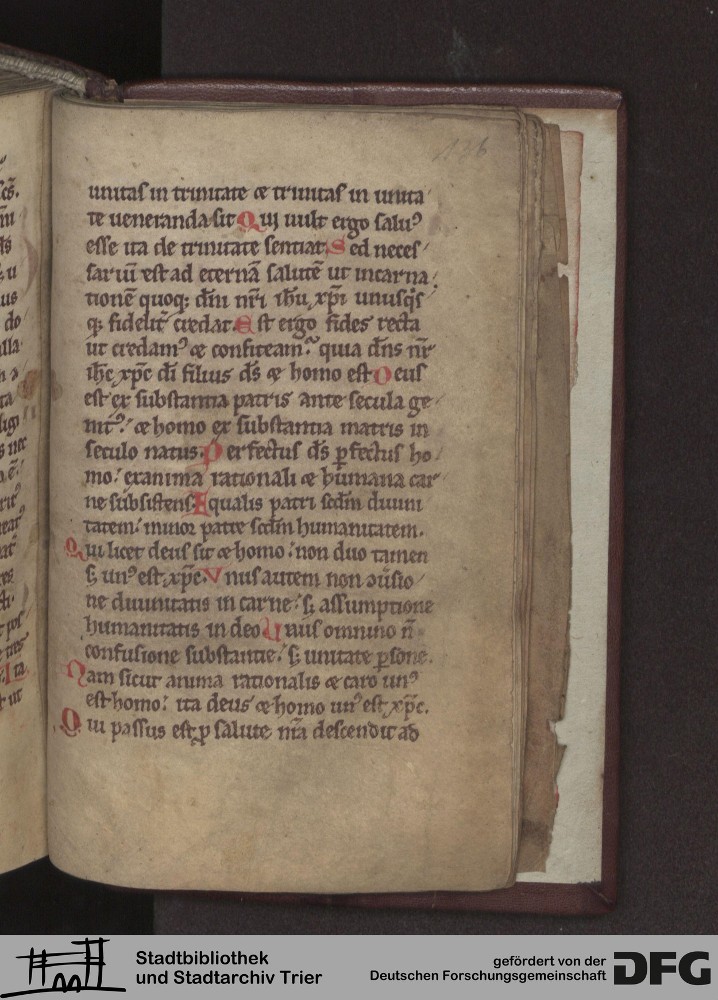 136
unitas in trinitate ⁊ trinitas in unita
te ueneranda sit Qui uult ergo saluꝰ
esse ita de trinitate sentiat. Sed neces
sariū est ad eternā salutē ut incarna
tionē quoq; dn̄i nr̄i ih̄u xp̄i unusq̄s
q; fidelit̄ credat. Est ergo fides recta
ut credamꝰ ⁊ confiteam̄ quia dn̄s nr̄
ih̄c xp̄c di filius ds̄ ⁊ homo est Deus
est ex substantia patris ante secula ge
nitꝰ: ⁊ homo ex substantia matris in
seculo natus. Perfectus ds̄ ꝑfectus ho
mo: ex anima rationali ⁊ humana car
ne subsistens. Equalis patri scdm̄ diuini
tatem: minor patre scdm̄ humanitatem.
Qui licet deus sit ⁊ homo: non duo tamen
s; unꝰ est xp̄c. Vnus autem non 9uersio
ne diuinitatis in carne: s; assumptione
humanitatis in deo Unus omnino n̄
confusione substantie: s; unitate ꝑsone.
Nam sicut anima rationalis ⁊ caro unꝰ
est homo: ita deus ⁊ homo unꝰ est xp̄c.
Qui passus est ꝓ salute nr̄a descendit ad
Stadtbibliothek
und Stadtarchiv Trier
gefördert von der
Deutschen Forschungsgemeinschaft
DFG